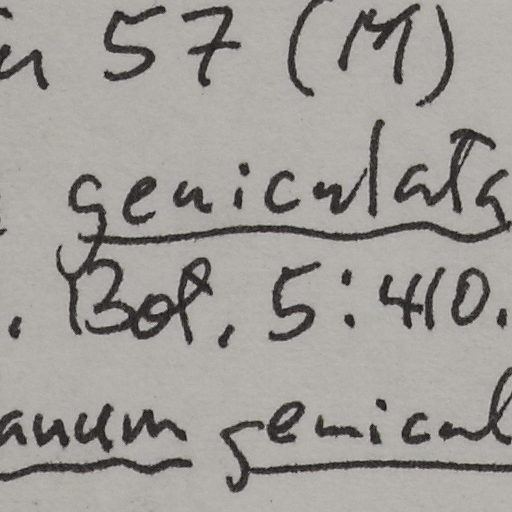 in 57 (M)
geniculata
. Bot. 5:410.
anum genicul